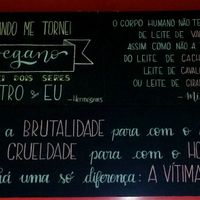 ANDO ME TORNEI
vegano
EI DOIS SERES
TRO & EU
O CORPO HUMANO NÃO TE
DE LEITE DE VA
ASSIM COMO NÃO A
DO LEITE DE CACH
LEITE DE CAVAL
OU LEITE DE GIRA
a BRUTALIDADE para com o
CRUELDADE para com o HO
há uma só diferença: A VÍTIMA